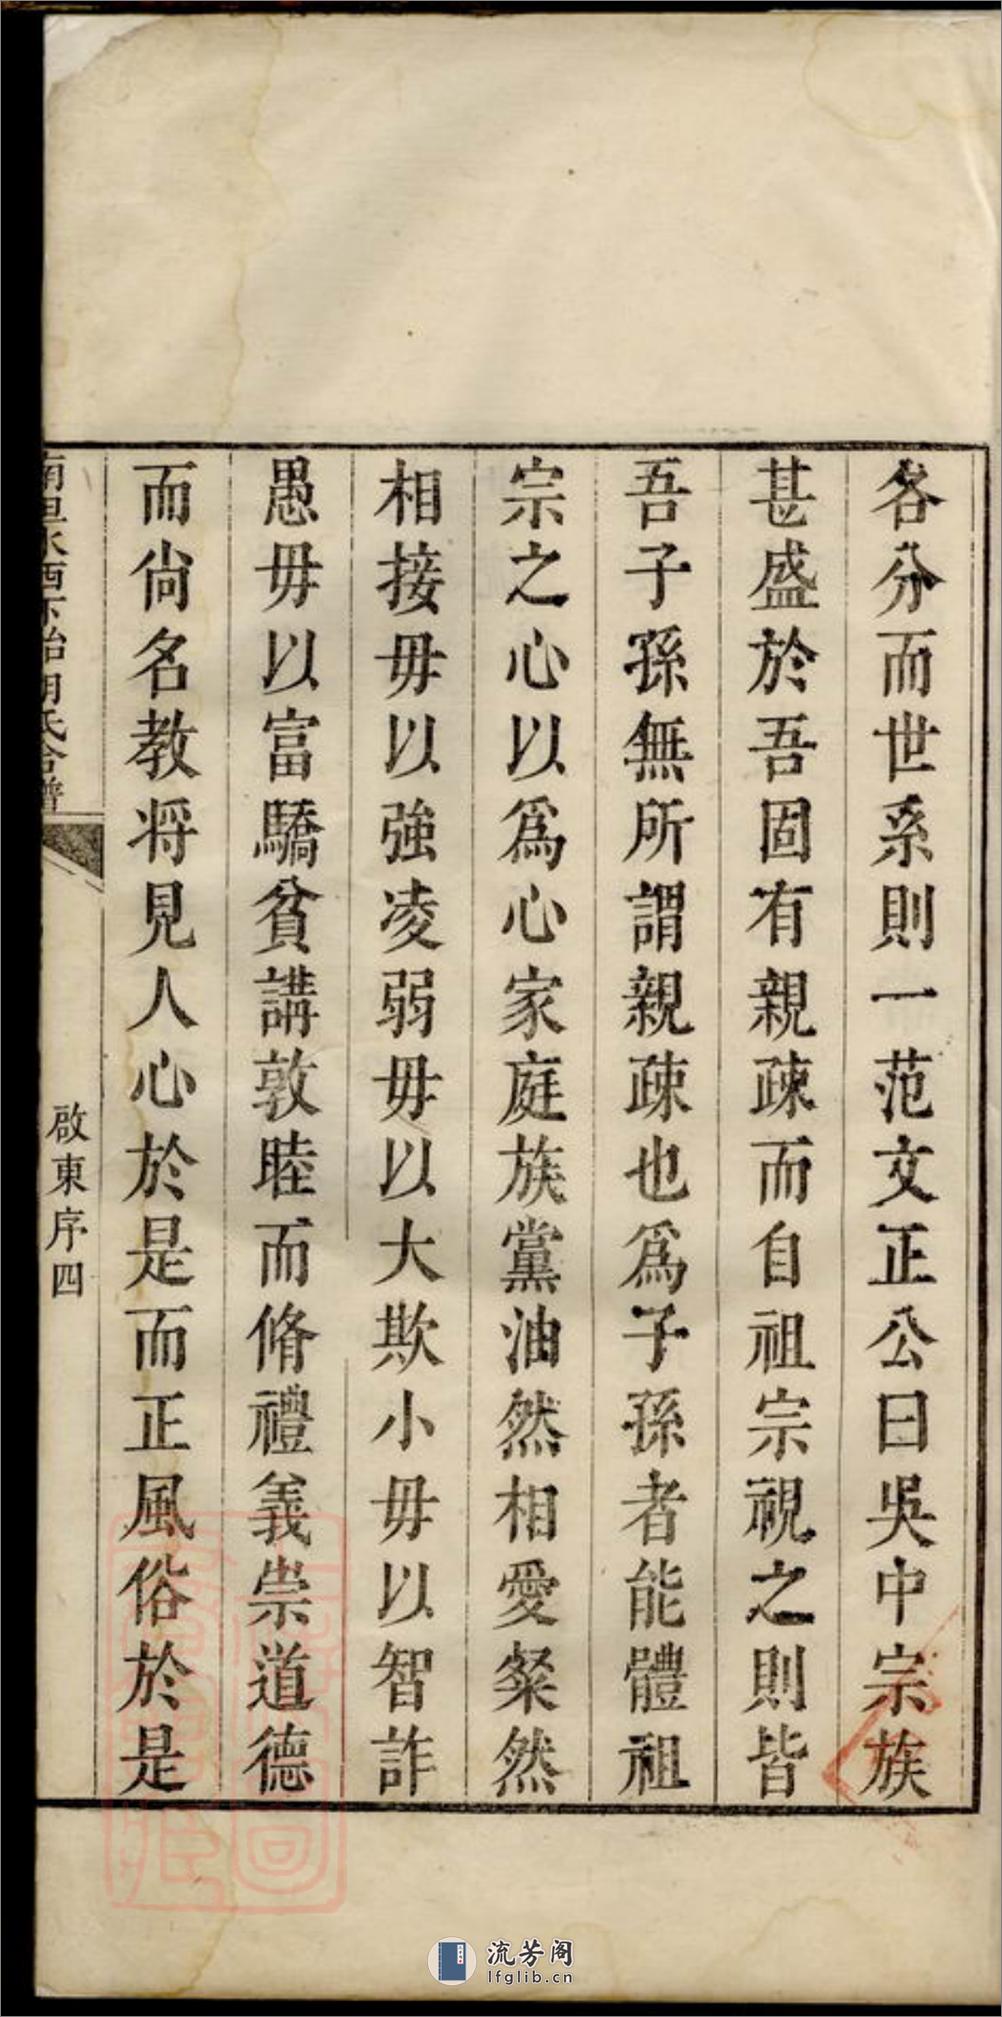 各分而世系則一范文正公曰吳中宗族
甚盛於吾固有親疎而自祖宗視之則皆
吾子孫無所謂親疎也為子孫者能體祖
宗之心以為心家庭族黨油然相愛粲然
相接毋以強凌弱毋以大欺小毋以智詐
愚毋以富驕貧講敦睦而脩禮義崇道德
而尚名教將見人心於是而正風俗於是
氏合譜
啟東序四
流芳阁
lfglib.cn